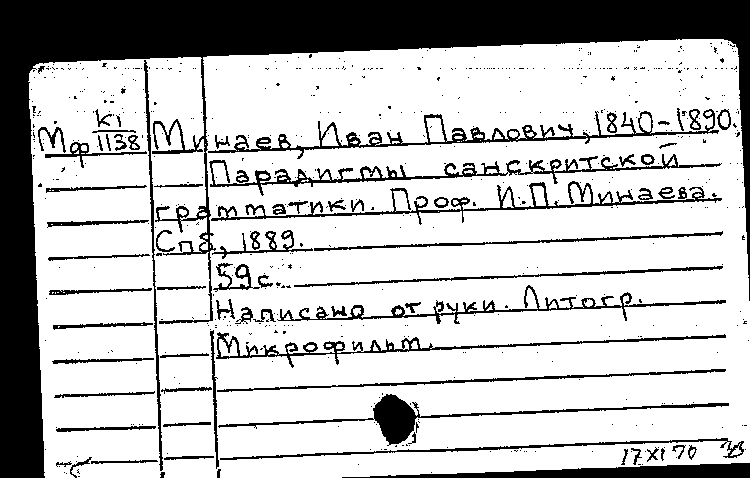 Мф К1/1138 Минаев, Иван Павлович, 1840-1890.
Парадигмы санскритской
грамматики. Проф. И.П. Минаева.
Спб, 1889.
59 с.
Написано от руки. Литогр.
Микрофильм.
17 XI 70